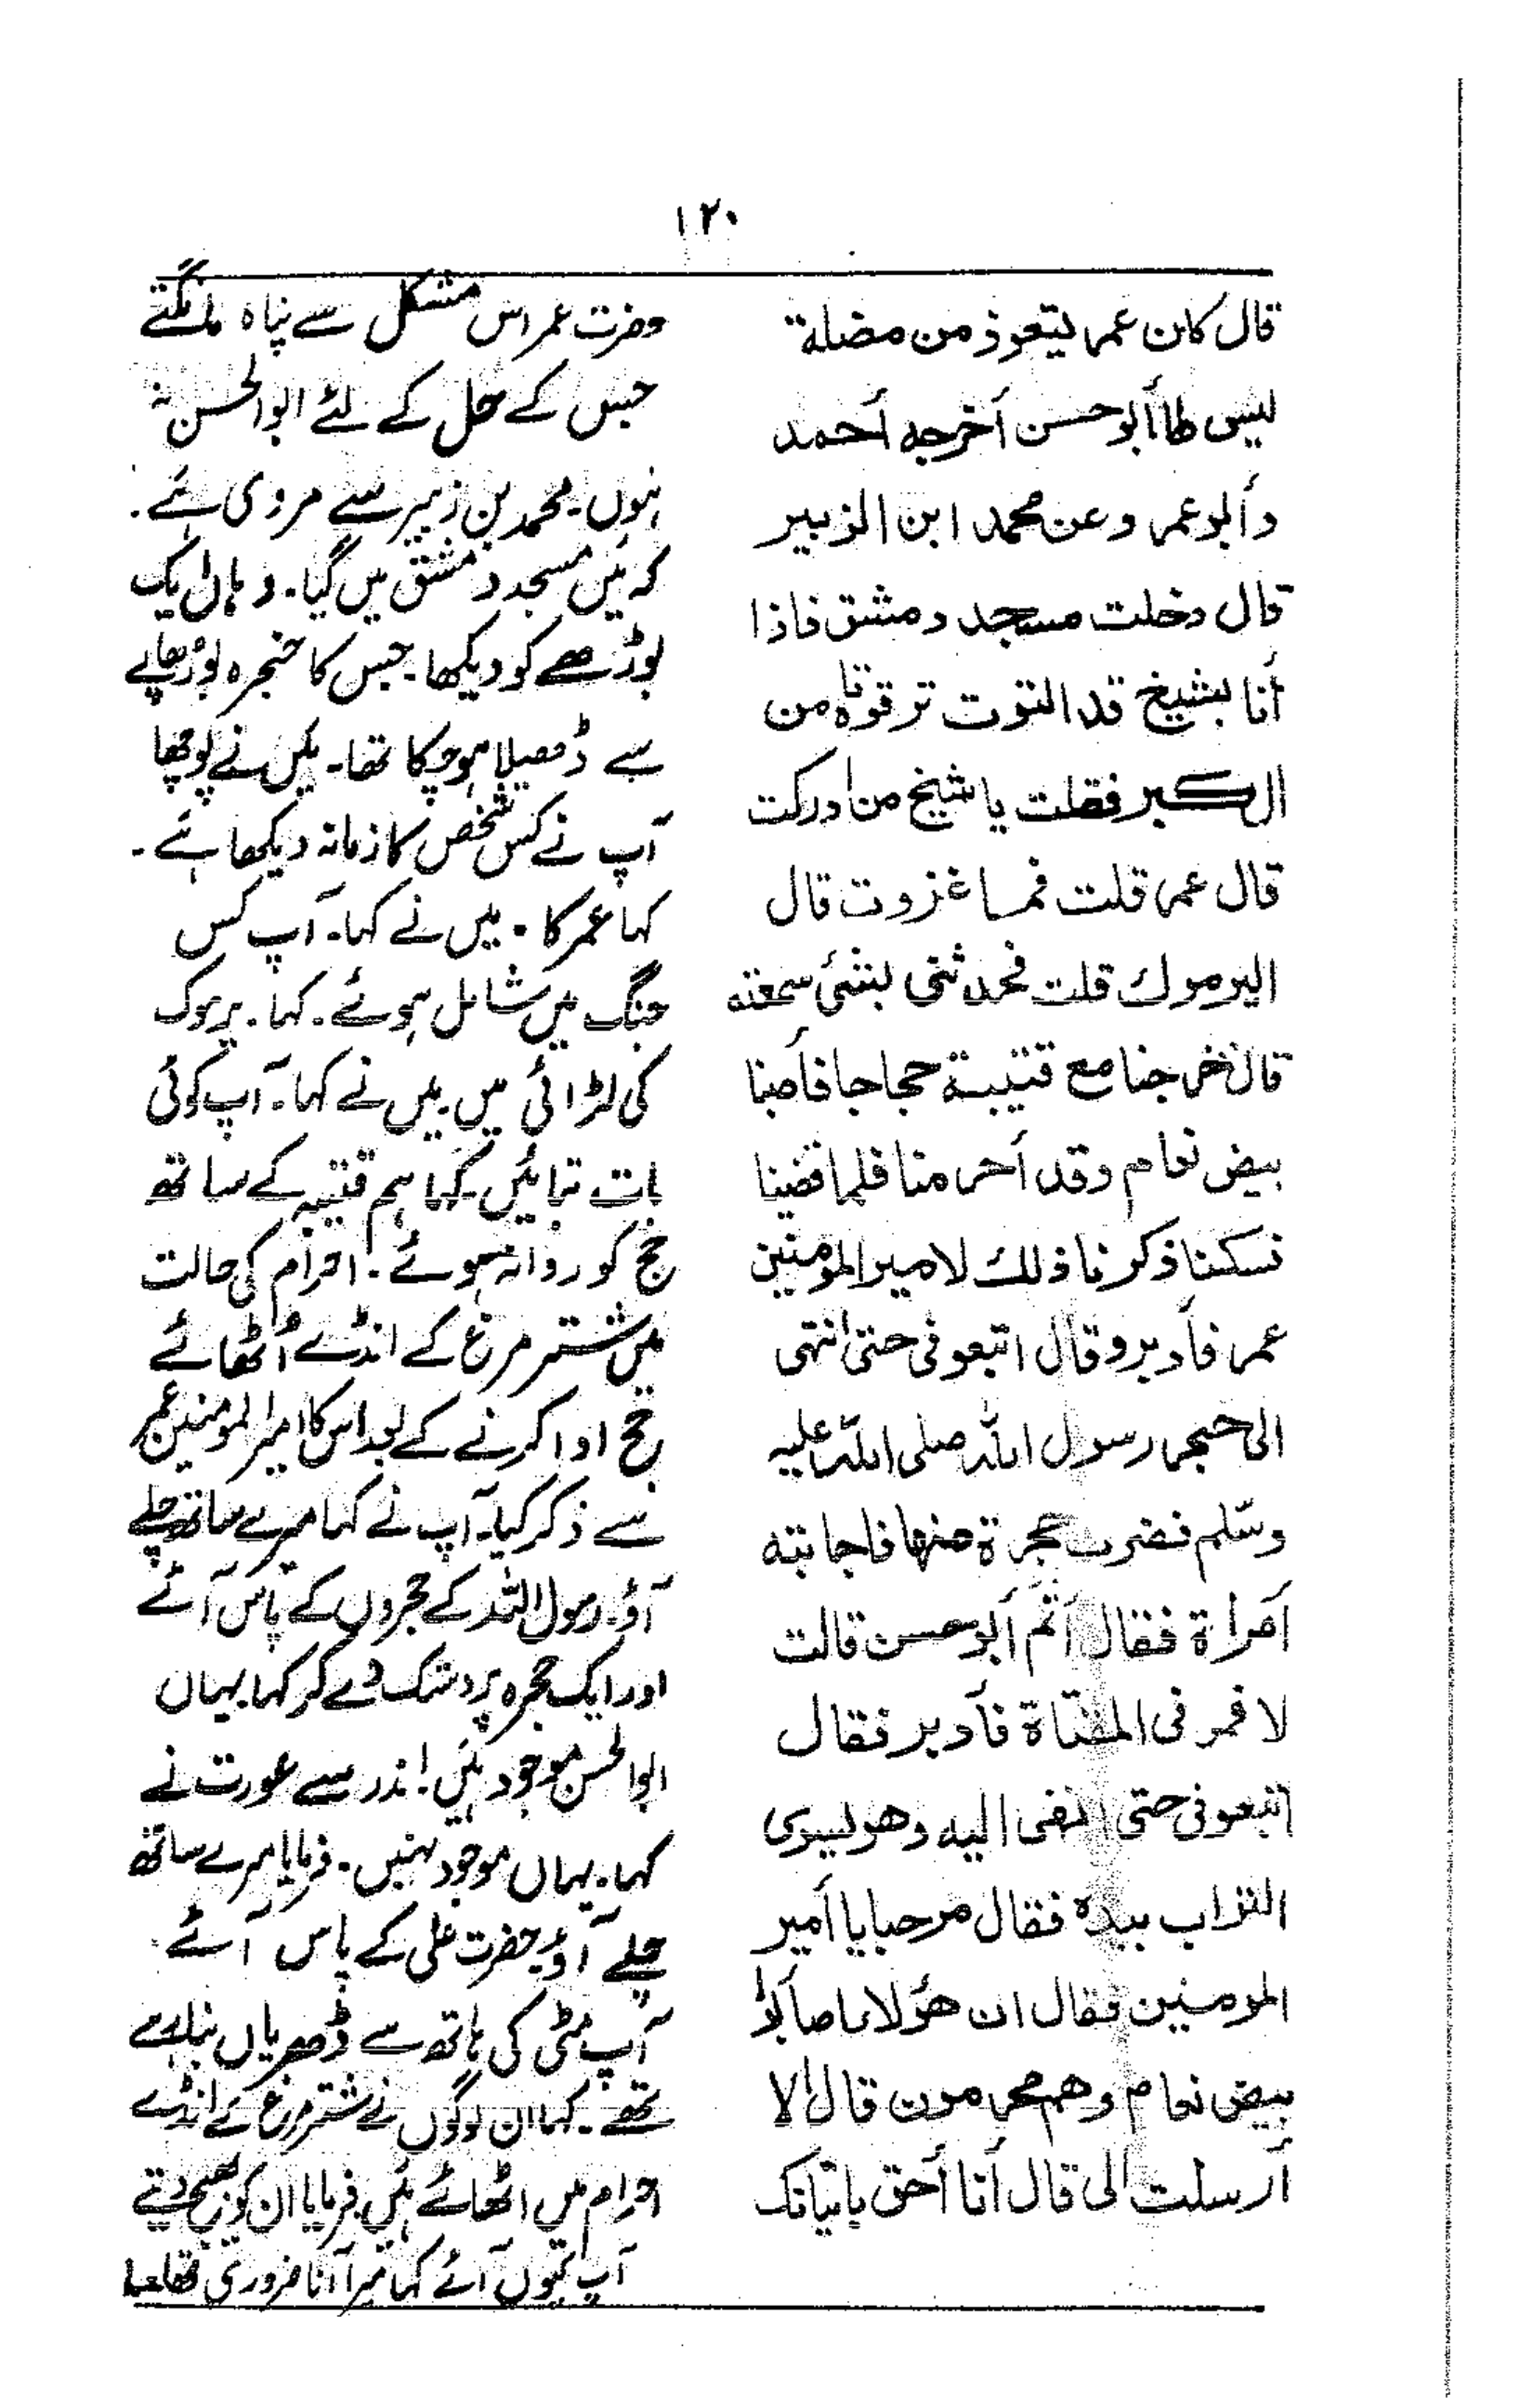 ۱۲۰
قال كان عمر يتعوذ من مضلة
ليس لها أبو حسن أخرجه أحمد
وأبو عمر وعن محمد ابن الزبير
قال دخلت مسجد دمشق فاذا
أنا بشيخ قد التوت ترقوتاه من
الكبر فقلت يا شيخ من ادركت
قال عمر قلت فما غزوت قال
اليرموك قلت فحدثنى بشئ سمعته
قال خرجنا مع قتيبة حجاجا فأصبنا
بيض نعام وقد أحرمنا فلما قضينا
نسكنا ذكرنا ذلك لامير المومنين
عمر فأدبر وقال اتبعونى حتى انتهى
الى حجر رسول الله صلى الله عليه
وسلم فضرب حجرة منها فاجابته
امراة فقال أثم أبو حسن قالت
لا فمر فى المقتاة فأدبر فقال
اتبعونى حتى انتهى اليه وهو يسوى
التراب بيده فقال مرحبا يا أمير
المومنين فقال ان هؤلاء اصابوا
بيض نعام وهم محرمون قال الا
أرسلت الى قال أنا أحق باتيانك
حضرت عمر اس مشکل سے پناہ مانگتے
جس کے حل کے لئے ابوالحسن نہ
ہوں۔ محمد بن زبیر سے مروی ہے۔
کہ میں مسجد دمشق میں گیا۔ وہاں ایک
بوڑھے کو دیکھا۔ جس کا حنجرہ بوڑھاپے
سے ڈھیلا ہو چکا تھا۔ میں نے پوچھا
آپ نے کس شخص کا زمانہ دیکھا ہے۔
کہا عمر کا۔ میں نے کہا۔ آپ کس
جنگ میں شامل ہوئے۔ کہا۔ یرموک
کی لڑائی میں۔ میں نے کہا۔ آپ کوئی
بات بتائیں کہا ہم قتیبہ کے ساتھ
حج کو روانہ ہوئے۔ احرام کی حالت
میں شتر مرغ کے انڈے اُٹھائے
حج ادا کرنے کے بعد اس کا امیر المومنین عمر
سے ذکر کیا۔ آپ نے کہا میرے ساتھ چلے
آؤ۔ رسول اللہ کے حجروں کے پاس آئے
اور ایک حجرہ پر دستک دے کر کہا۔ یہاں
ابوالحسن موجود ہیں! اندر سے عورت نے
کہا۔ یہاں موجود نہیں۔ فرمایا میرے ساتھ
چلے آؤ حضرت علی کے پاس آئے
آپ مٹی کی ہاتھ سے ڈھیریاں بنا رہے
تھے۔ کہا ان لوگوں نے شتر مرغ کے انڈے
احرام میں اٹھائے ہیں فرمایا ان کو بھیج دیتے
آپ کیوں آئے کہا میرا آنا ضروری تھا